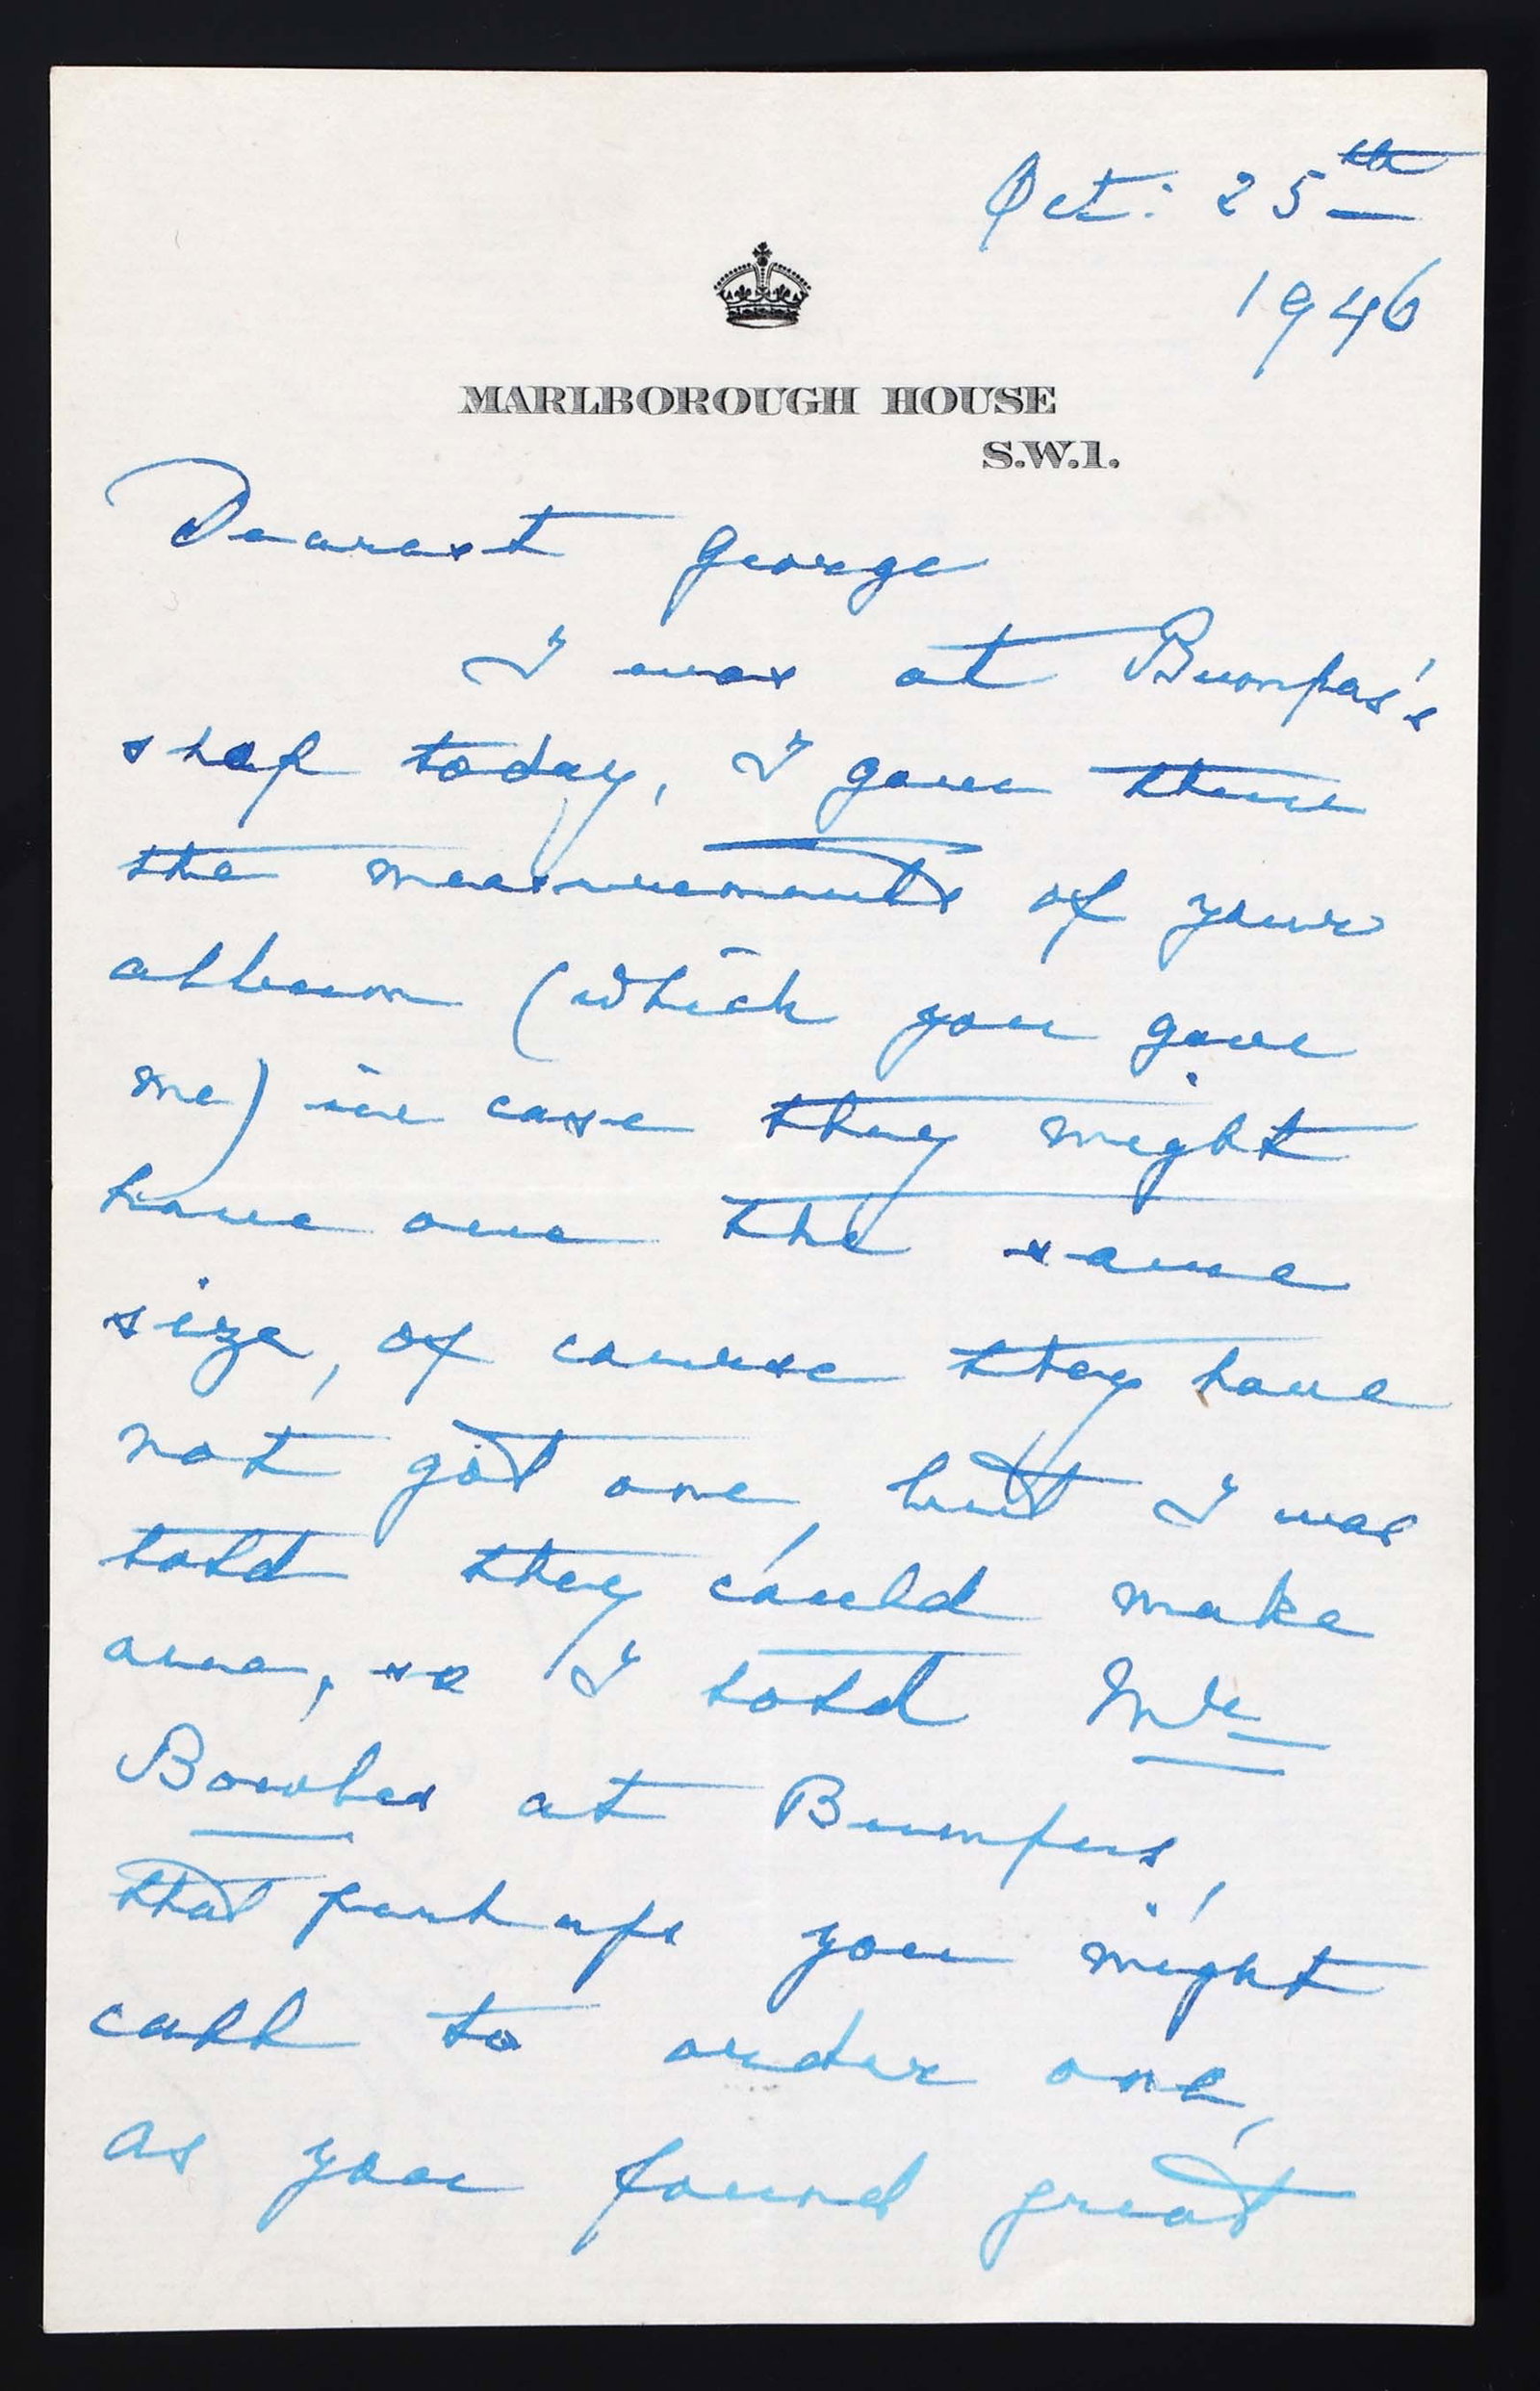 Oct: 25th
1946
MARLBOROUGH HOUSE
S.W.1.
Dearest George
I was at Bumpas's
shop today, I gave them
the measurements of your
album (which you gave
me) in case they might
have one the same
size, of course they have
not got one, but I was
told they could make
one, so I told Mr
Bowles at Bumpus,
that perhaps you might
call to order one,
as you found great